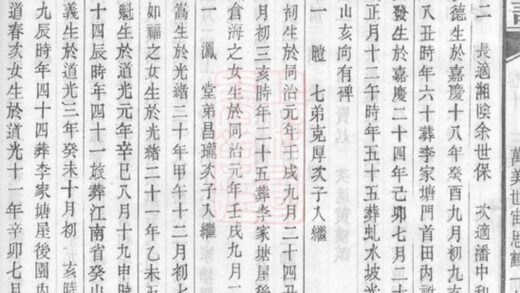 萬美世宙思鶴
二 長適湘陰余世保 次適潘中和
德生於嘉慶十八年癸酉九月初九亥
八丑時年六十葬李家塘門首田內祔
發生於嘉慶二十四年己卯七月二十
正月十二午時年五十五葬虬水坡光
山亥向有碑
一 瞻 七弟克厚次子入繼
祠生於同治元年壬戌九月二十四丑
月初三亥時年二十五葬李家塘屋後
倉海之女生於同治元年壬戌九月二
一 鳳 堂弟昌瓏次子入繼
嵩生於光緒二十年甲午十二月初七
如福之女生於光緒二十一年乙未五
魁生於道光元年辛巳八月十九申時
十四辰時年四十一旅葬江南省癸山
義生於道光三年癸未十月初 亥時
九辰時年四十四葬李家塘屋後園內
道春次女生於道光十一年辛卯七月